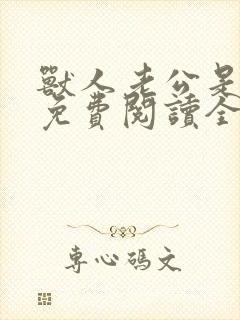 獸人老公是
免費閱讀全
專心碼文